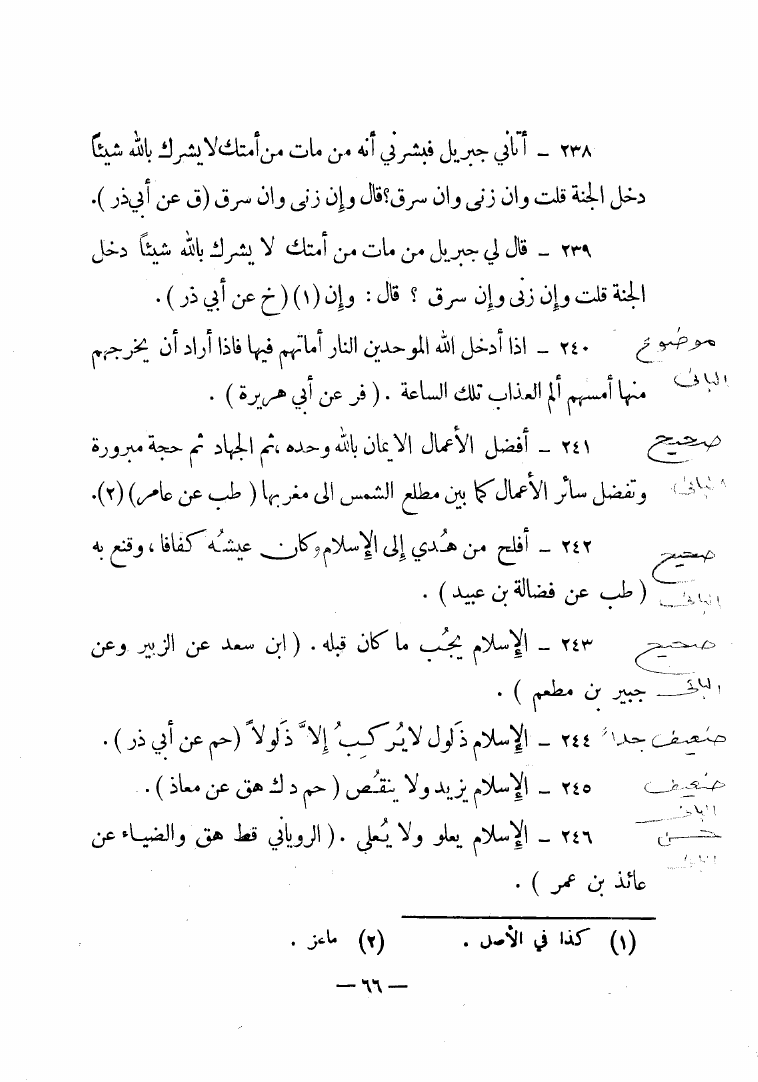 ٢٣٨ ـ أتاني جبريل فبشرني أنه من مات من أمتك لا يشرك بالله شيئاً
دخل الجنة قلت وان زنى وان سرق؟ قال وإن زنى وان سرق (ق عن أبي ذر ).
٢٣٩ ـ قال لي جبريل من مات من أمتك لا يشرك بالله شيئاً دخل
الجنة قلت وإن زنى وإن سرق ؟ قال : وإن (١) (خ عن أبي ذر ) .
موضوع ٢٤٠ ـ اذا أدخل الله الموحدين النار أماتهم فيها فاذا أراد أن يخرجهم
الباني منها أمسهم ألم العذاب تلك الساعة . ( فر عن أبي هريرة ) .
صحيح ٢٤١ ـ أفضل الأعمال الايمان بالله وحده ، ثم الجهاد ثم حجة مبرورة
الباني وتفضل سائر الأعمال كما بين مطلع الشمس الى مغربها ( طب عن عامر) (٢).
صحيح ٢٤٢ ـ أفلح من هُدي إلى الإسلام وكان عيشُه كفافا ، وقنع به
الباني ( طب عن فضالة بن عبيد ) .
صحيح ٢٤٣ ـ الإسلام يجُب ما كان قبله . ( ابن سعد عن الزبير وعن
الباني جبير بن مطعم ) .
ضعيف جداً ٢٤٤ ـ الإسلام ذَلول لا يُركبُ إلاَّ ذَلولاً (حم عن أبي ذر ) .
ضعيف ٢٤٥ ـ الإسلام يزيد ولا ينقُص ( حم د ك هق عن معاذ ) .
الباني
حسن ٢٤٦ ـ الإسلام يعلو ولا يُعلى . ( الروياني قط هق والضياء عن
الباني
عائذ بن عمر ) .
(١) كذا في الأصل . (٢) ماعز .
— ٦٦ —